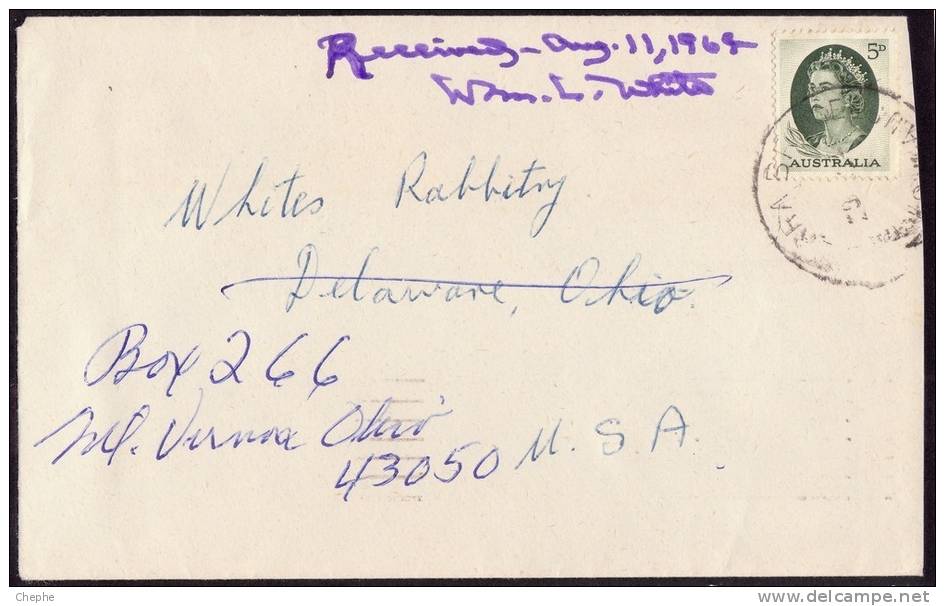 Received - Aug. 11, 1969
Wm. L. White
5D
AUSTRALIA
Whites Rabbitry
Delaware, Ohio.
Box 266
Mt. Vernon Ohio
43050 U.S.A.
Chephe
delcampe.net